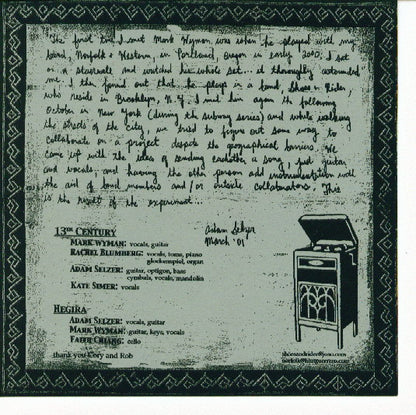 The first time I met Mark Wyman was when he played with my
band, Norfolk & Western, in Portland, Oregon in early 2000. I sat
on a staircase and watched his whole set... it thoroughly astounded
me. I then found out that he plays in a band, Shoes n Rider,
who reside in Brooklyn, N.Y. I met him again the following
October in New York (during the subway series) and while walking
the streets of the city, we tried to figure out some way to
collaborate on a project despite the geographical barriers. We
came up with the idea of sending eachother a song, just guitar
and vocals, and having the other person add instrumentation with
the aid of band members and/or outside collaborators. This
is the result of the experiment...
Adam Selzer
March '01
13TH CENTURY
MARK WYMAN: vocals, guitar
RACHEL BLUMBERG: vocals, toms, piano
glockenspiel, organ
ADAM SELZER: guitar, optigon, bass
cymbals, vocals, mandolin
KATE SIMER: vocals
HEGIRA
ADAM SELZER: vocals, guitar
MARK WYMAN: guitar, keys, vocals
FAITH CHIANG: cello
thank you Cory and Rob